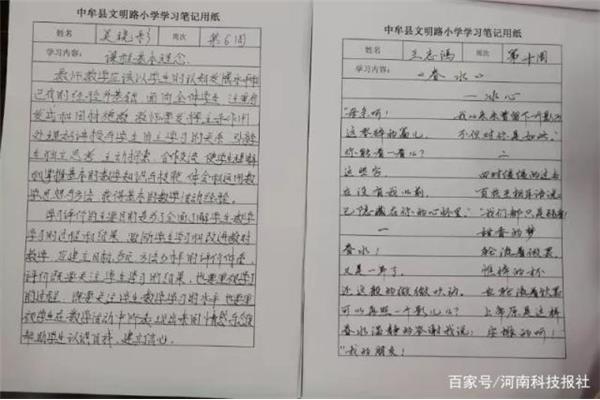 中牟县文明路小学学习笔记用纸
姓名 吴晓彤 周次 第6周
学习内容:
课程基本理念
教师教学应该以学生的认知发展水平和
已有的经验为基础,面向全体学生,注重启
发式和因材施教,教师要发挥主导作用
处理好讲授与学生自主学习的关系,引导学
生独立思考、主动探索、合作交流,使学生理解
和掌握基本的数学知识与技能,体会和运用数
学思想与方法,获得基本的数学活动经验。
学习评价的主要目的是为了全面了解学生数学
学习的过程和结果,激励学生学习和改进教师
教学,应建立目标多元、方法多样的评价体系。
评价既要关注学生学习的结果,也要重视学习
的过程,既要关注学生数学学习的水平,也要重
视学生在数学活动中所表现出来的情感与态度
帮助学生认识自我,建立信心。
中牟县文明路小学学习笔记用纸
姓名 王志鸿 周次 第十周
学习内容:
《春水》
一冰心
"母亲呵!
这零碎的篇儿,
你能看一看么?
这些字,
在没有我以前,
已隐藏在你的心怀里。"
一
春水!
又是一年了,
还这般的微微吹动。
可以再照一个影儿么?
春水温静的答谢我说:
"我的朋友!
我从来未曾留下一个影子
不但对你是如此。"
二
四时缓缓的过去
百花互相耳语说:
"我们都只是弱者!
甜香的梦
轮流着做罢,
憔悴的杯
也轮流着饮罢
上帝原是这样
安排的呵!
百家号/河南科技报社